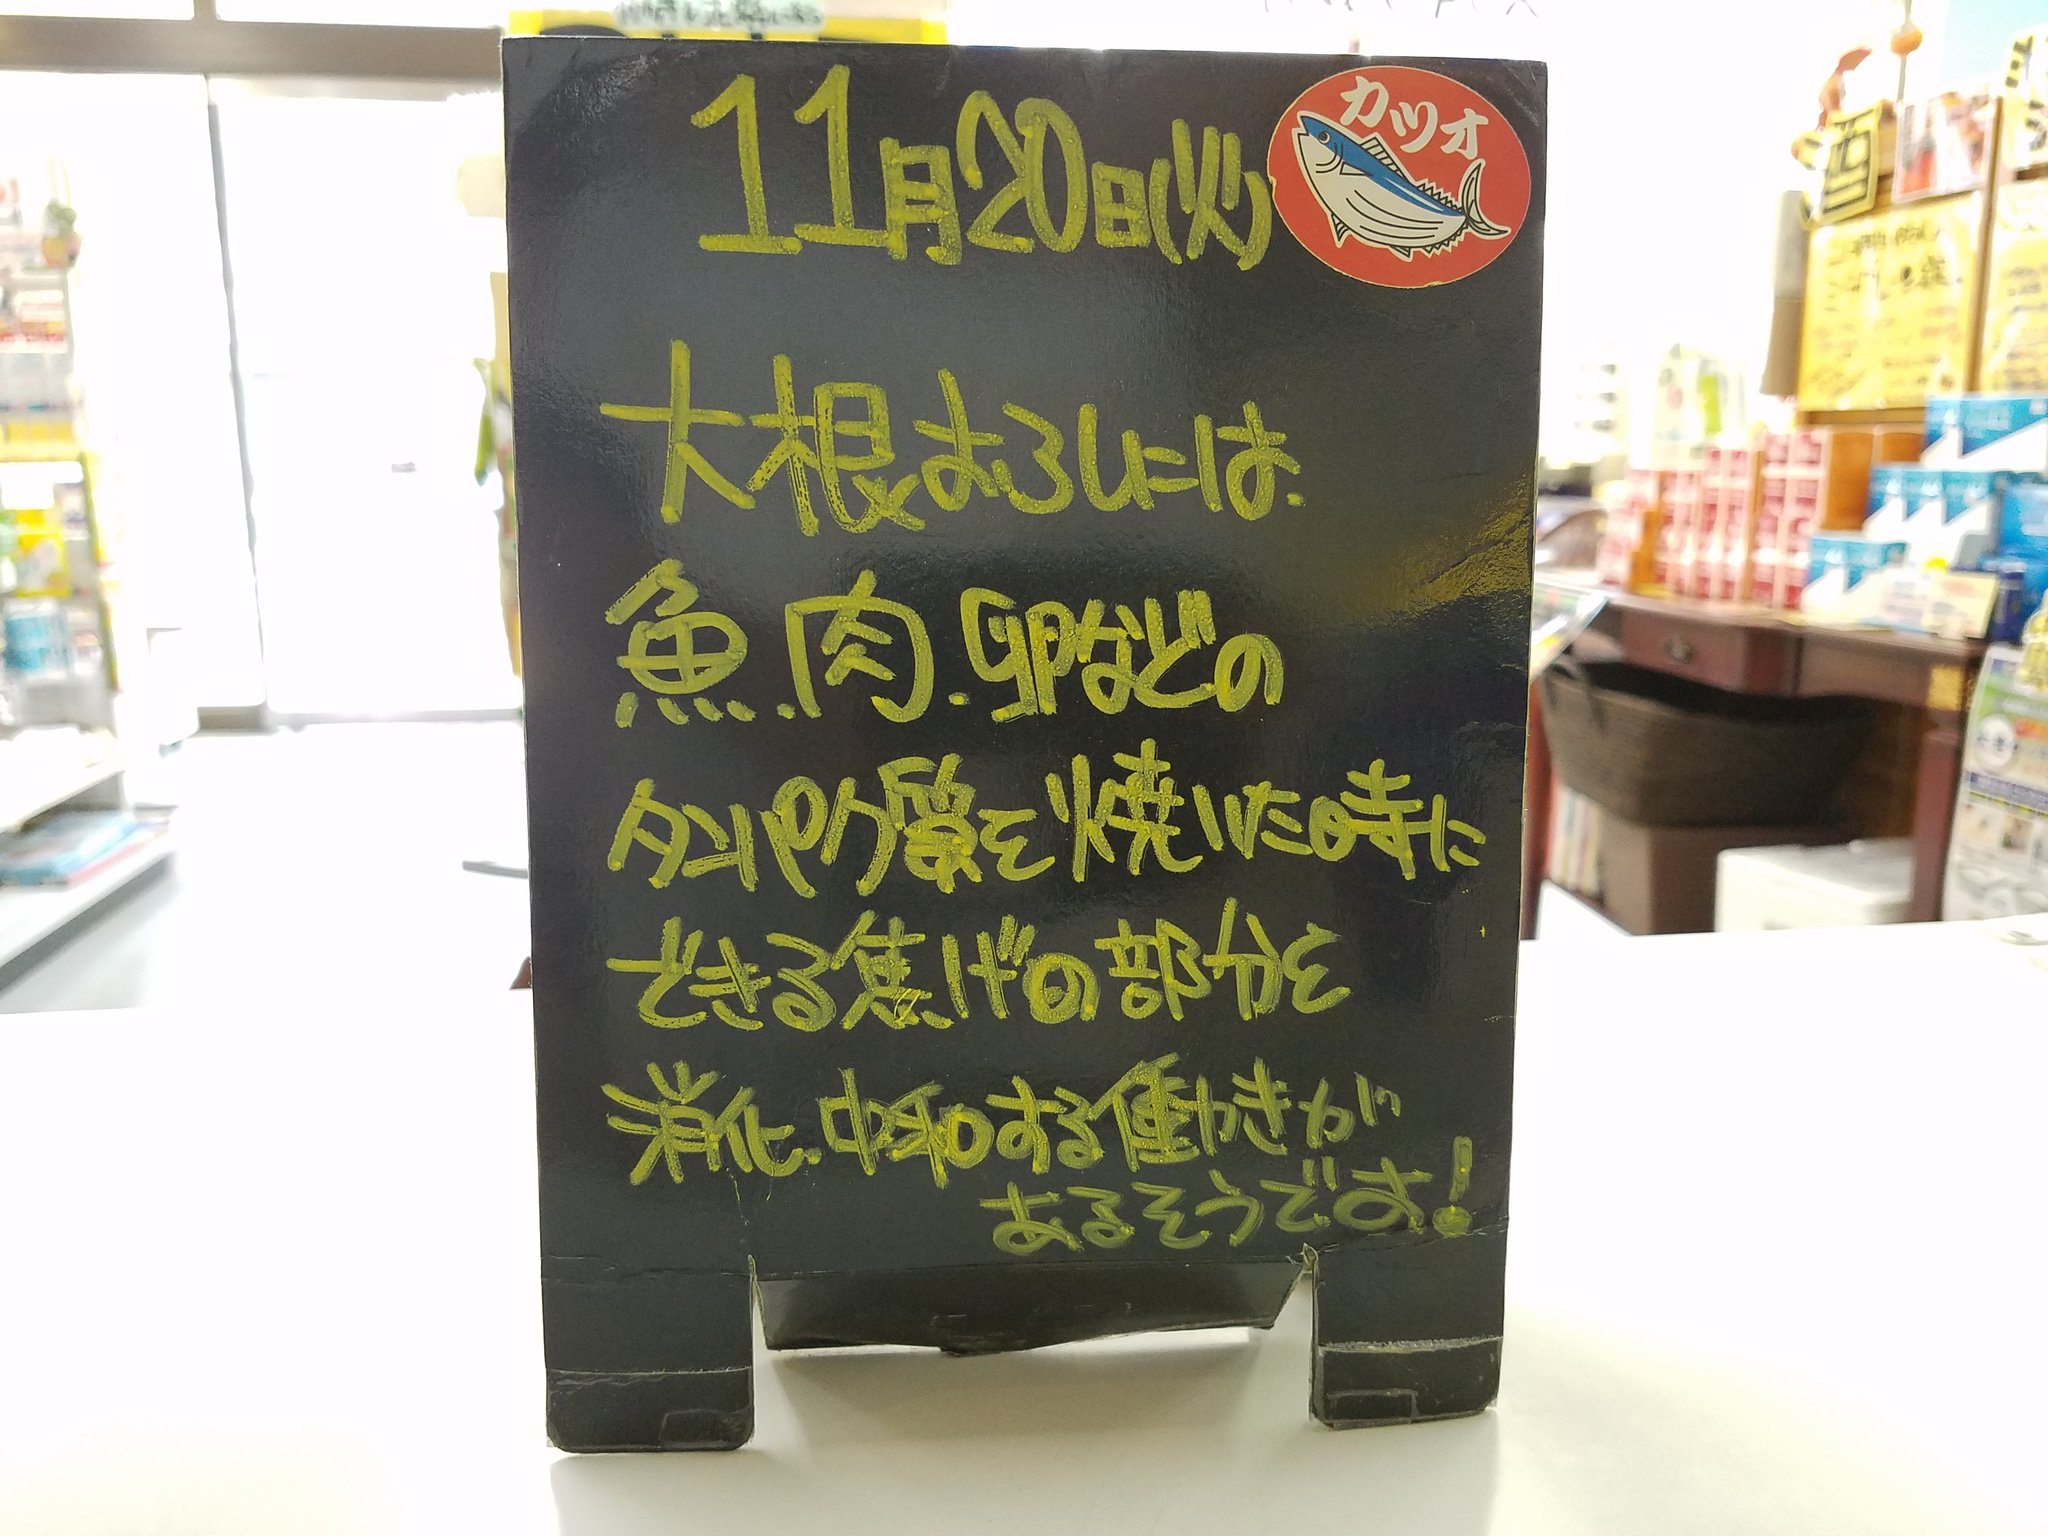 11月20日(火)
カツオ
大根おろしには、
魚、肉、卵などの
タンパク質を焼いた時に
できる焦げの部分を
消化、中和する働きが
あるそうです!
酒